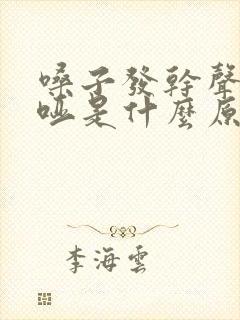 嗓子發幹聲
啞是什麼原
李海雲